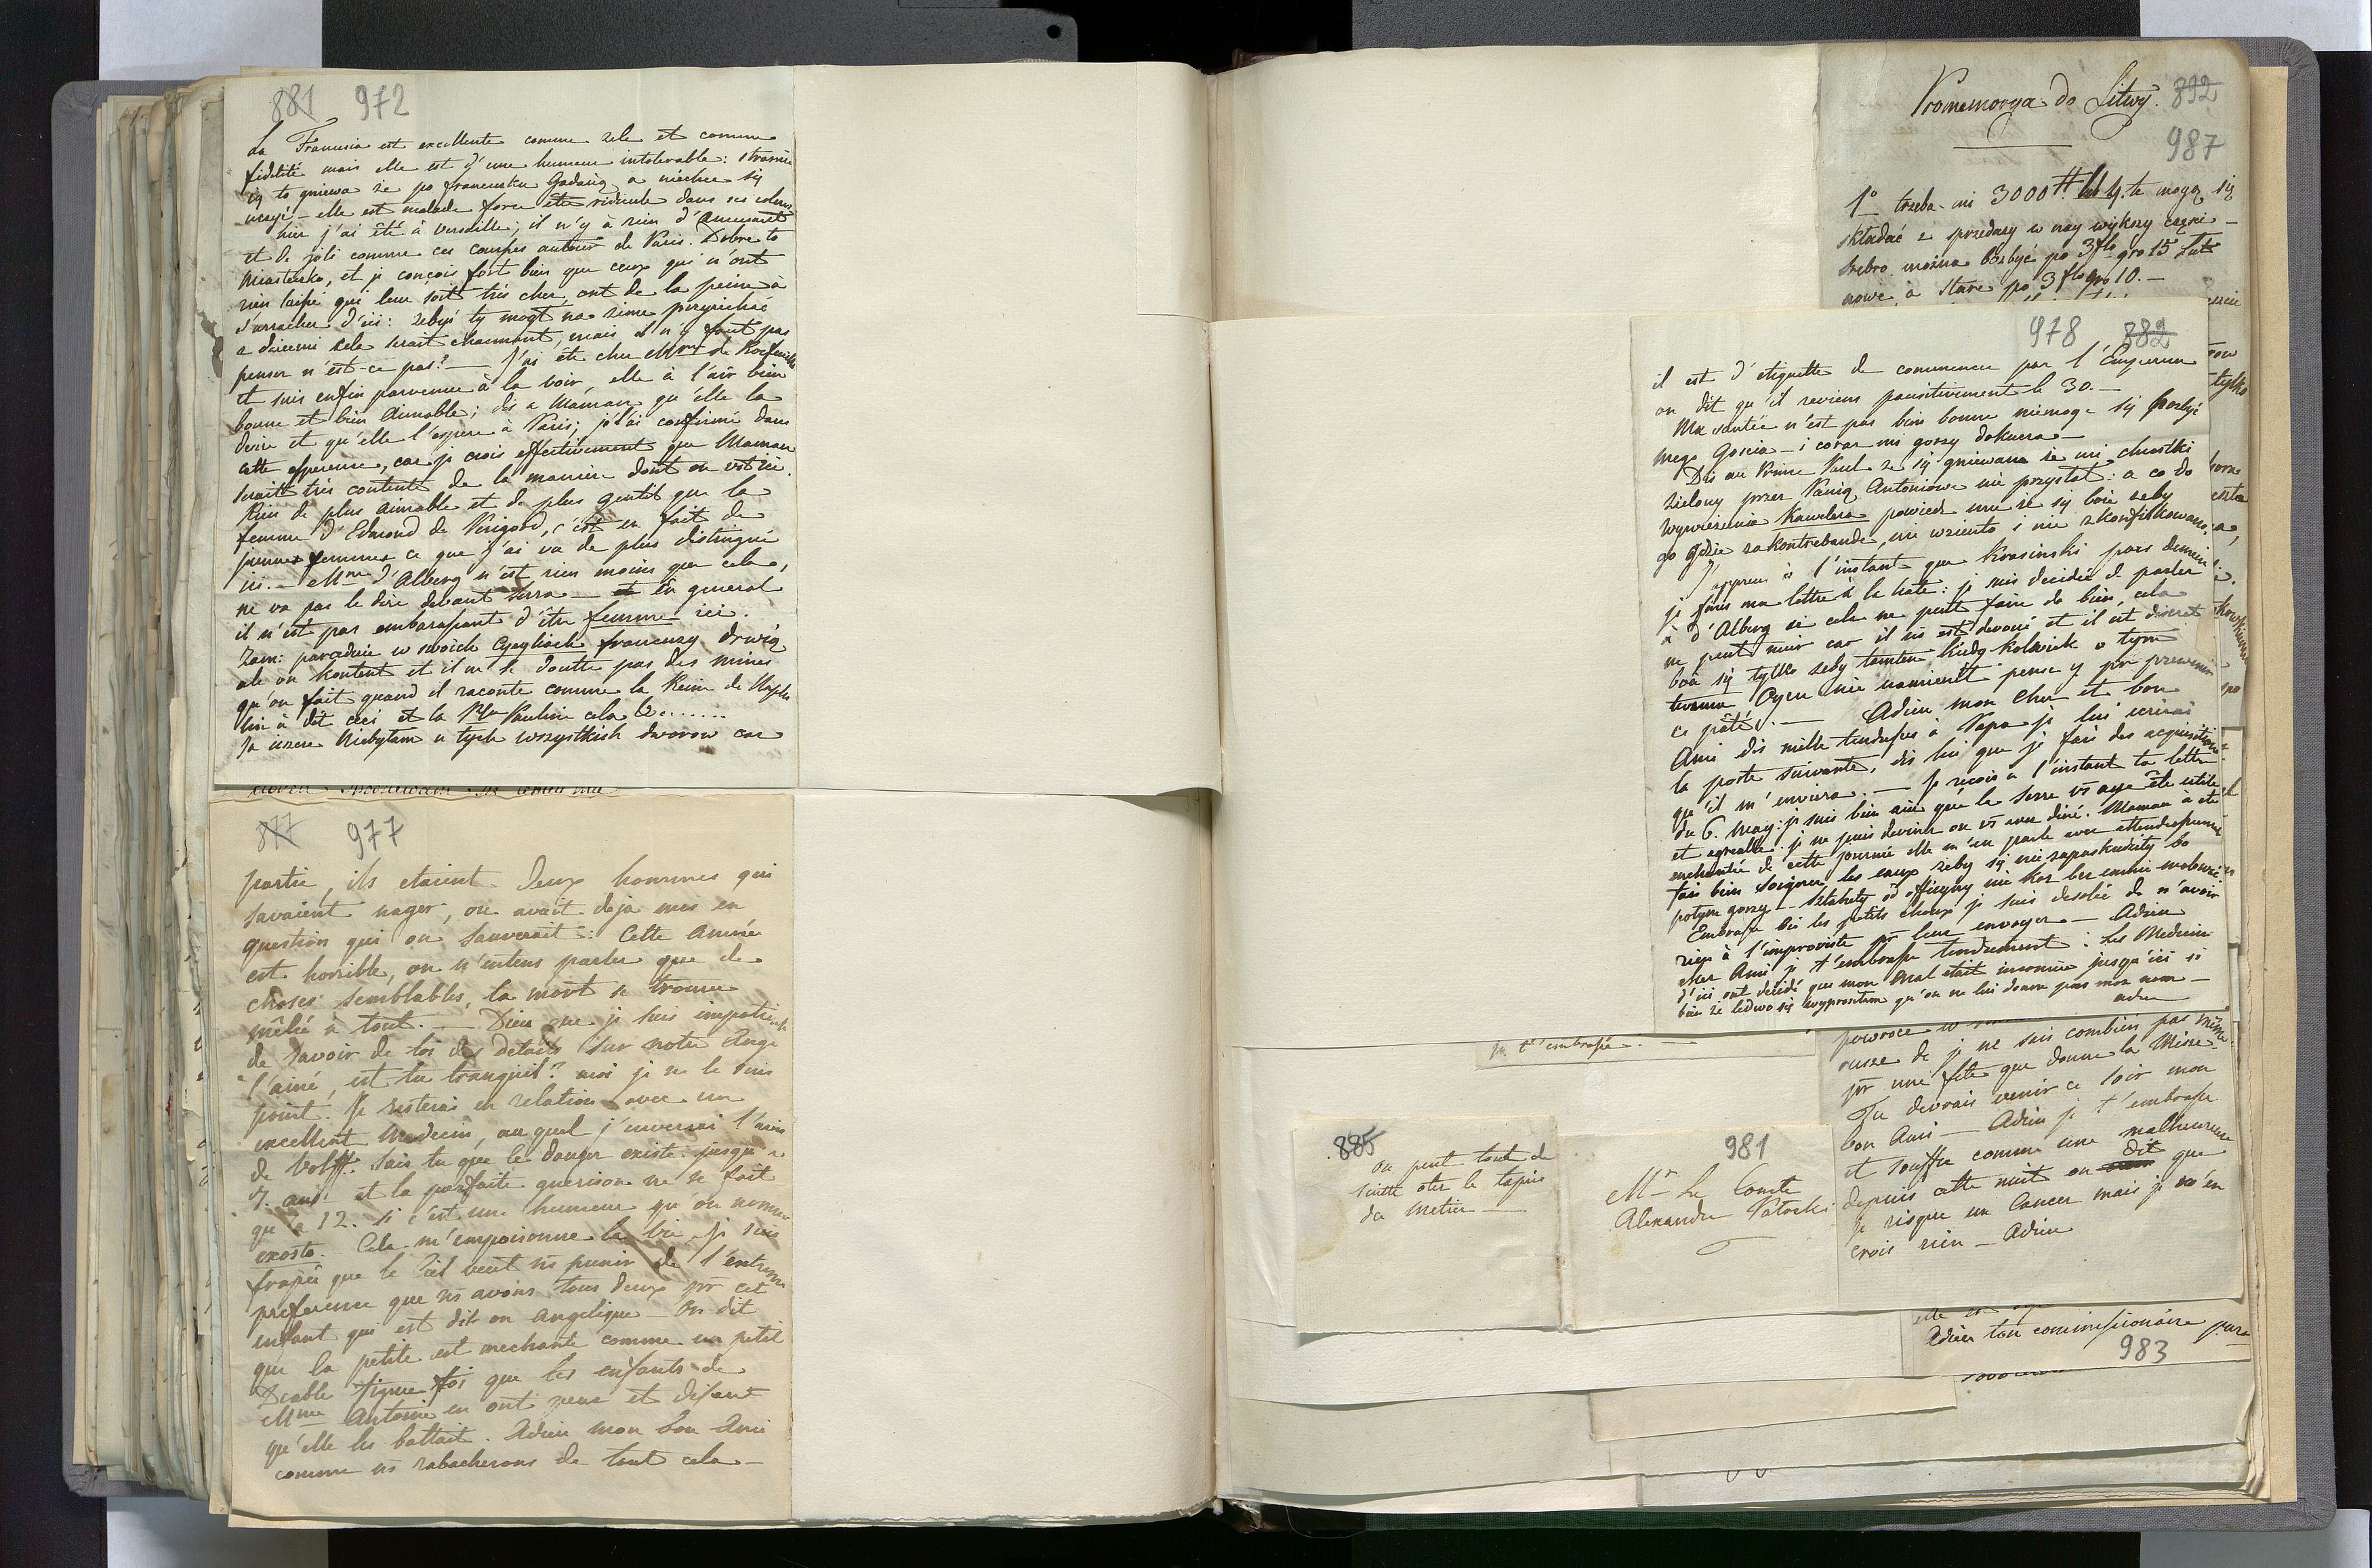 881 972
La Franusia est excellente comme zele et comme
fidelité mais elle est d'une humeur intolerable: strasznie
się to gniewa że po francusku gadaią a niechce się
uczyć - elle est malade force être ridicule dans ses coleres
hier j'ai été à Versaille; il n'y à rien d'amusant
et de joli comme ces courses autour de Paris. Dobre to
Miasteczko, et je conçois fort bien que ceux qui n'ont
rien laissé qui leur soit très cher, ont de la peine à
s'arracher d'ici: żebyś ty mogł na zime przyiechać
z dziećmi cela serait charmant, mais il n'y faut pas
penser n'est-ce pas? — J'ai été chez Mme de
et suis enfin parvenue à la voir, elle à l'air bien
bonne et bien aimable; dis a Maman qu'elle la
desire et qu'elle l'espere à Paris; je l'ai confirmé dans
cette esperence, car je crois effectivement que Maman
serait très contente de la maniere dont on est ici.
Rien de plus aimable et de plus gentil que la
femme d'Edmond de Perigord, c'est en fait de
jeunes femmes ce que j'ai vu de plus distingué
ici. — Mme d'Alberg n'est rien moins que cela,
ne va pas le dire devant Serra — et en general
il n'est pas embarassant d'être femme ici.
w swoich francuzy drwią
ale on kontent et il ne se doute pas des mines
qu'on fait quand il raconte comme la Reine de Naples
lui à dit ceci et la Psse Pauline cela &.......
Ja ieszcze niebyłam u tych wszystkich dworow car
877 977
partie, ils etaient deux hommes qui
savaient nager, on avait deja mis en
question qui on sauverait: Cette année
est horrible, on n'entens parler que de
choses semblables, la mort se trouve
mêlé à tout. — Dieu que je suis impatiente
de savoir de toi des details sur notre Ange
l'ainé, est tu tranquil? moi je ne le suis
point. Je resterai en relation avec un
excellent Medecin, au quel j'enverrai l'avis
de Wolff. Sais tu que le danger existe jusqu'a
7. ans et la parfaite guerison ne se fait
qu'a 12. si c'est une humeur qu'on nomme
exosto. Cela m'empoisonne la vie. Je suis
frapée que le Ciel veut ns punir de l'extreme
preference que ns avons tous deux pr cet
enfant qui est dit-on angelique — On dit
que la petite est mechante comme un petit
Diable figure toi que les enfants de
Mme Antoine en ont peur et disent
qu'elle les battait. Adieu mon bon Ami
comme ns rabacherons de tout cela —
Promemorya do Litwy. 892
987
1o trzeba mi 3000 # te mogą się
składać z przedaży w nay większy części —
srebro można pozbyć po 3 flo gro 15 łut
nowe, a stare po 3 flo gro 10. —
978 882
il est d'etiquette de commencer par l'Empereur
on dit qu'il reviens positivement le 30. —
Ma santée n'est pas bien bonne niemogę się pozbyć
mego Goscia — i coraz mi gorzy dokucza —
Dis au Prince Paul że się gniewam że mi chustki
zielony przez Panią Antoniowe nie przysłał: a co do
wywiezienia Kawalera powiedz mu że się boie żeby
go gdzie za kontrebande, nie wziento i nie zkonfiskowano.
J'apprens à l'instant que Krasinski pars demain
je finis ma lettre à la hate: je suis decidée de parler
à d'Alberg si cela ne peut faire de bien, cela
ne peut nuir car il ns est devoué et il est discret
boie się tylko żeby tamten kiedy kolwiek o tym
twemu Oycu nie namienił pense y pr prevenir
ce pâté. — Adieu mon cher et bon
Ami dis mille tendresses à Papa je lui ecrirai
la poste suivante, dis lui que je fais des acquisitions
qu'il m'enviera. — Je recois a l'instant ta lettre
du 6. May: je suis bien aise que la Serre vs aye été utile
et agreable. je ne puis deviner ou vs avez diné. Maman à été
enchantée de cette journée elle m'en parle avec attendrissement
fais bien soigner les eaux żeby się nie zapaskudziły bo
potym gorzy — Sztakety od officyny nie każ bez emnie malować.
Embrasse les petits choux je suis desolée de n'avoir
rien à l'improviste pr leur envoyer — Adieu
cher Ami je t'embrasse tendrement: Les Medecins
d'ici ont decidé que mon mal était inconnu jusqu'ici si
bien że ledwo się wyprosiłam qu'on ne lui donne pas mon nom —
adieu
je t'embrasse. —
885
On peut tout de
suitte oter le tapis
du metier —
981
Mr Le Comte
Alexandre Potocki
powroce w
ousse de je ne sais combien pas même
pr une fête que donne la Mine
Tu devrais venir ce soir mon
bon Ami — Adieu je t'embrasse
et souffre comme une malheureuse
depuis cette nuit on dit que
je risque un Cancer mais je n'en
crois rien — Adieu
Adieu ton commissionaire
983